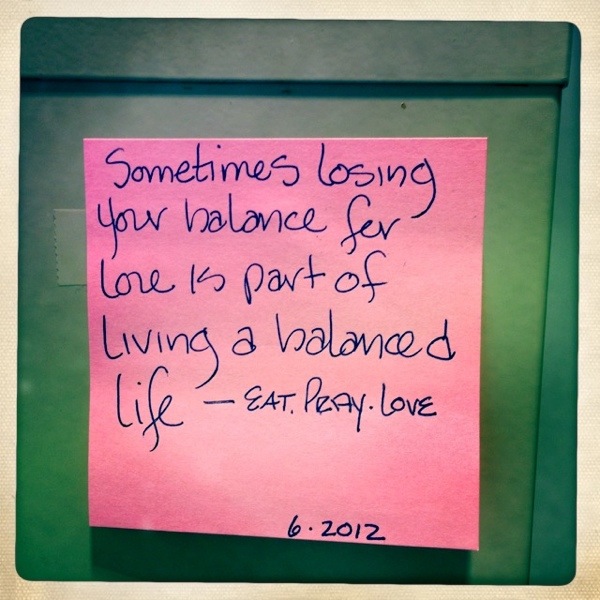 Sometimes losing
your balance for
love is part of
living a balanced
life — EAT. PRAY. LOVE
6.2012